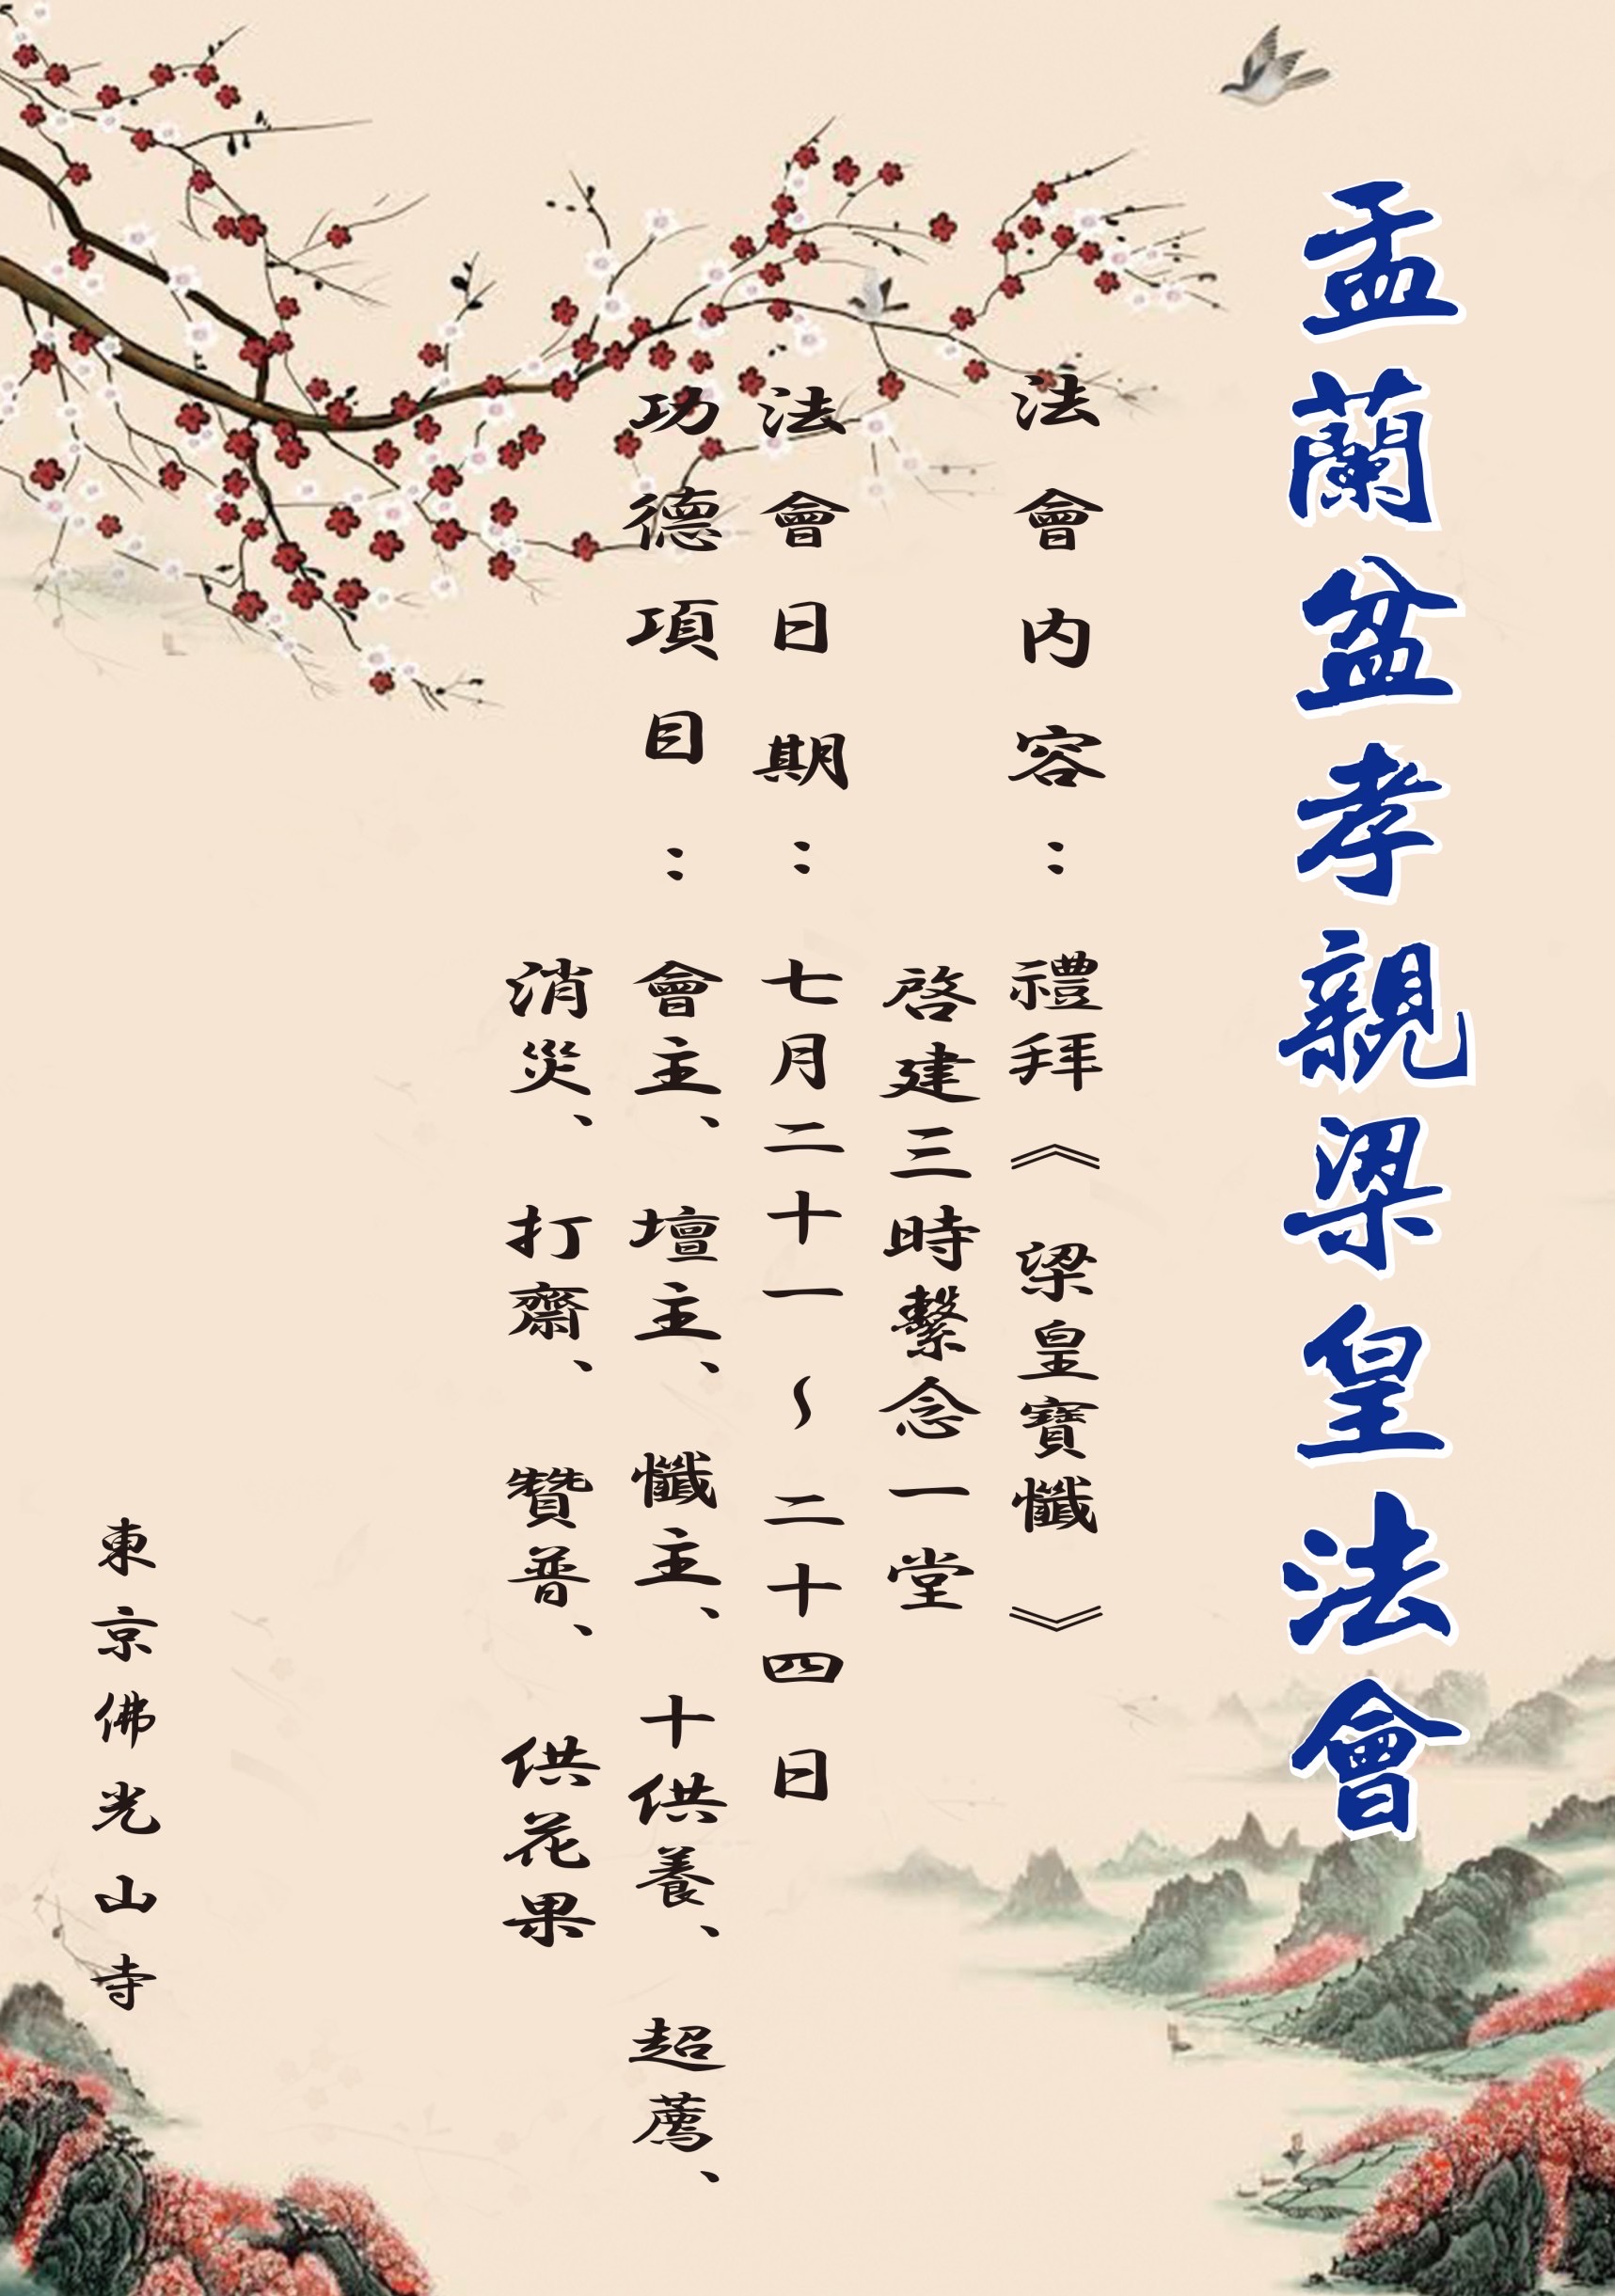 盂蘭盆孝親梁皇法會
法會內容：禮拜《梁皇寶懺》
啓建三時繫念一堂
法會日期：七月二十一～二十四日
功德項目：會主、壇主、懺主、十供養、超薦、
消災、打齋、贊普、供花果
東京佛光山寺